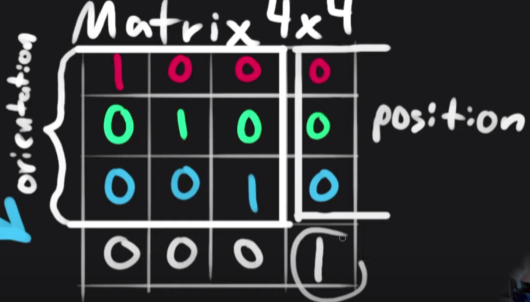 Matrix 4x4
orientation
1 0 0 0
0 1 0 0
0 0 1 0
position
0 0 0 1